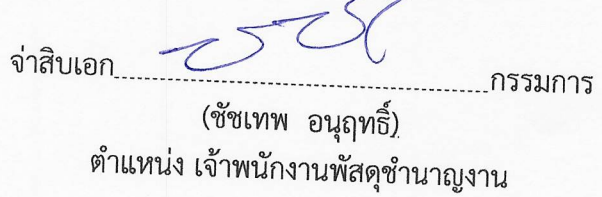 จ่าสิบเอก........................................................กรรมการ
(ชัชเทพ อนุฤทธิ์)
ตำแหน่ง เจ้าพนักงานพัสดุชำนาญงาน